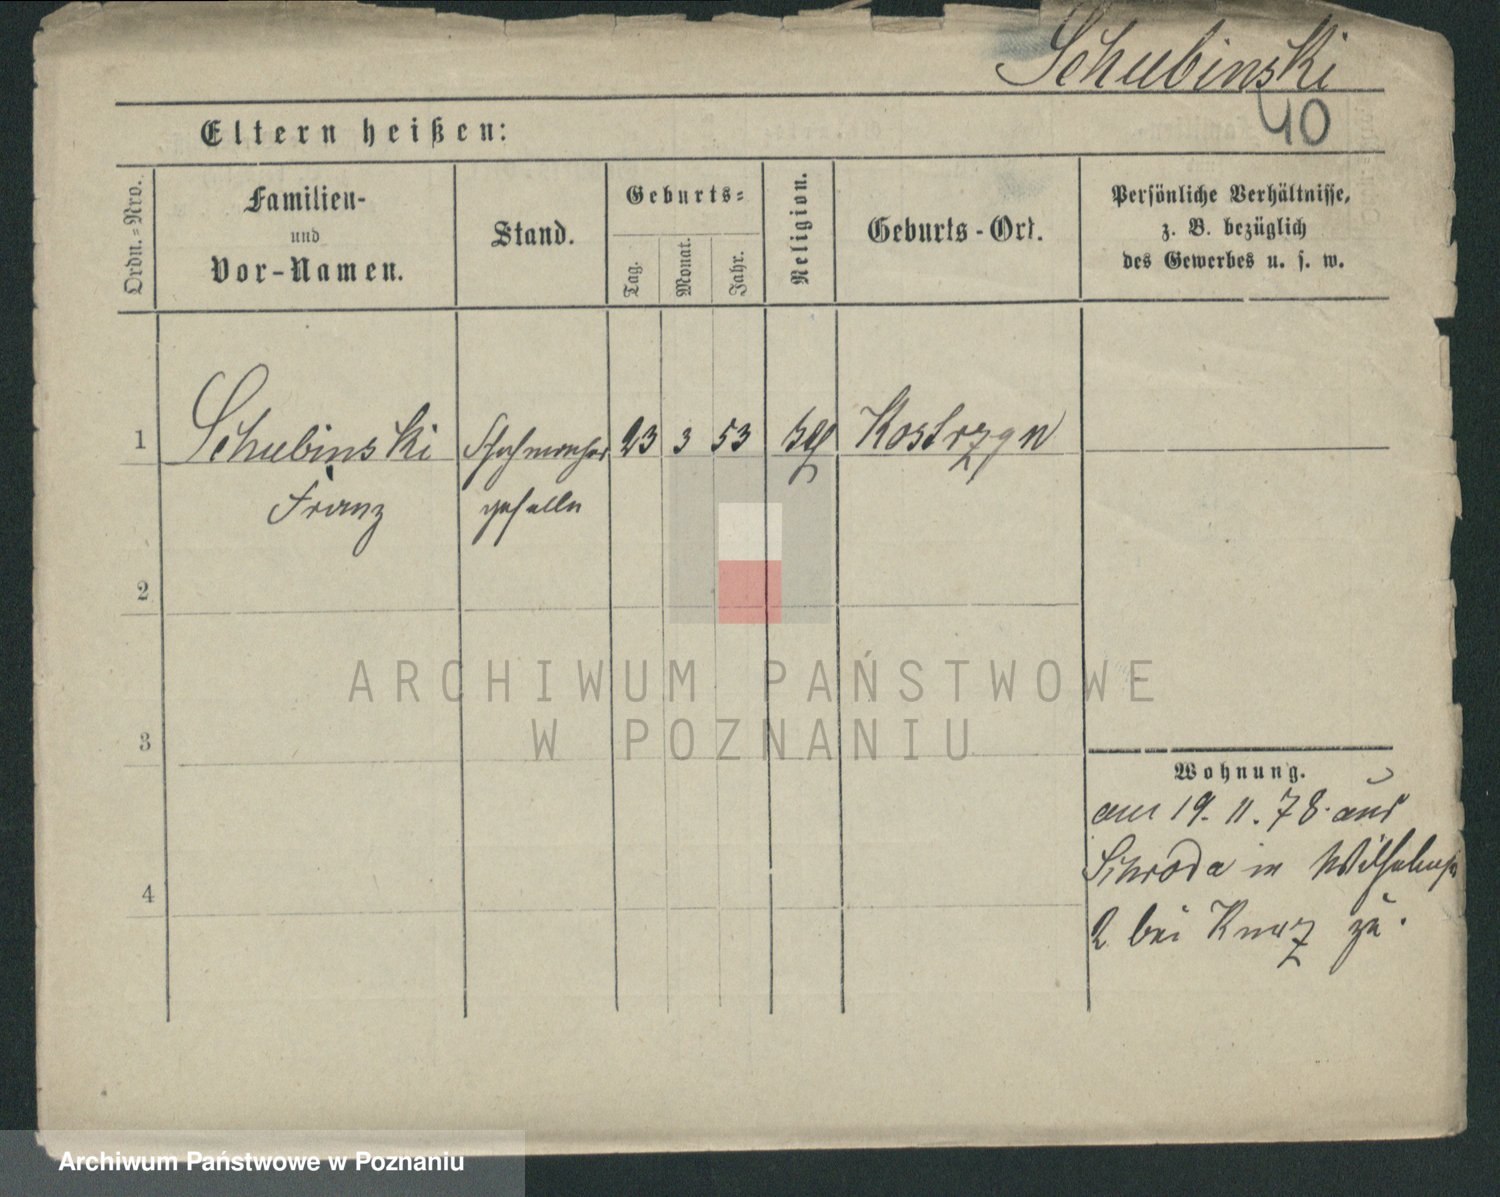 Schubinski
40
Eltern heißen:
Ordn.=Nro.
Familien-
und
Vor-Namen.
Stand.
Geburts=
Tag.
Monat.
Jahr.
Religion.
Geburts-Ort.
Persönliche Verhältnisse,
z. B. bezüglich
des Gewerbes u. s. w.
1
Schubinski
23
3
53
Kostrzyn
Franz
2
3
4
Wohnung.
am 19. 11. 78. aus
Schroda in
2 bei zu.
ARCHIWUM PAŃSTWOWE
W POZNANIU
Archiwum Państwowe w Poznaniu